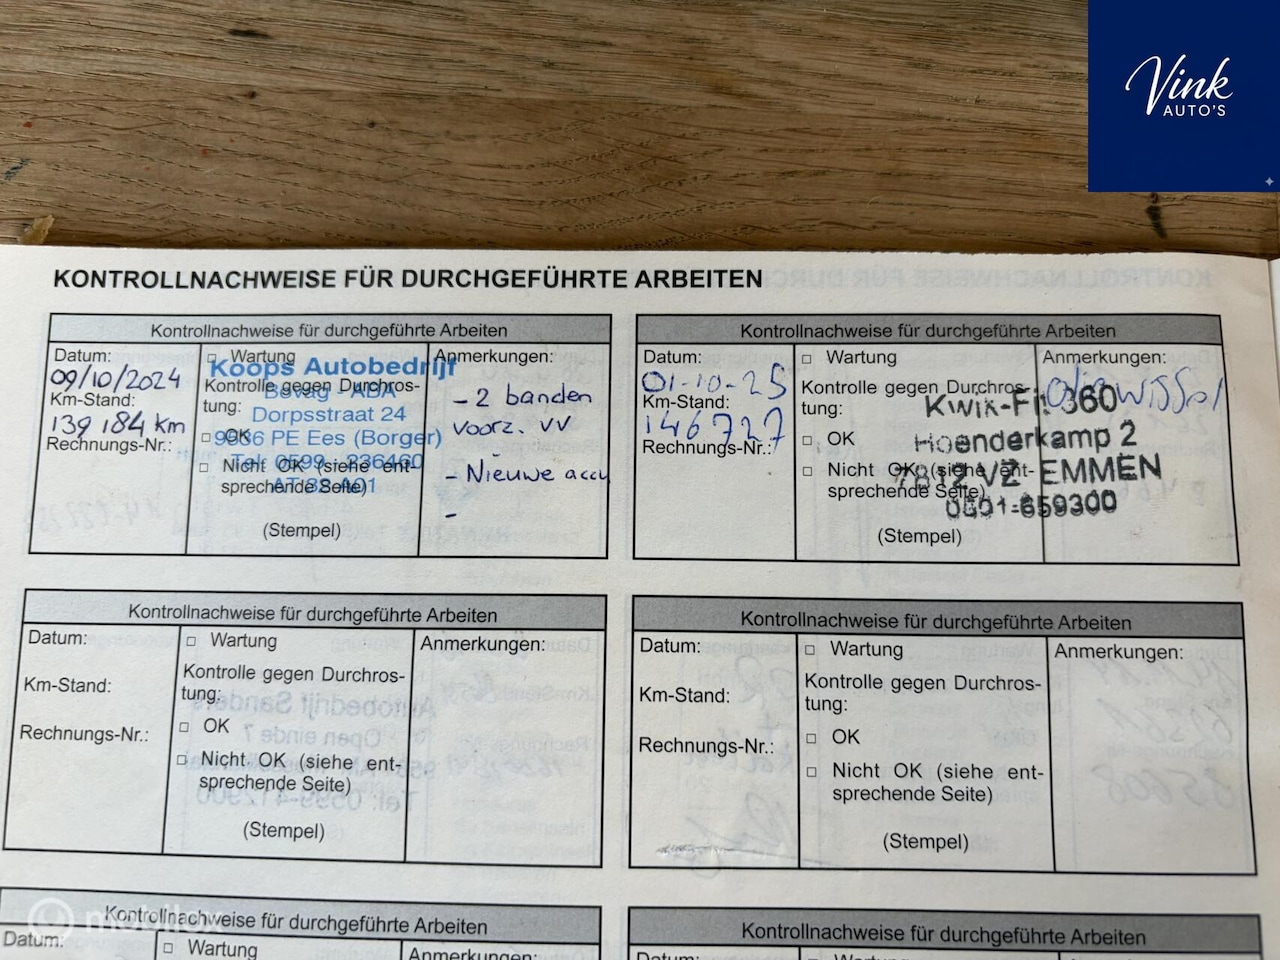 Vink
AUTO'S
KONTROLLNACHWEISE FÜR DURCHGEFÜHRTE ARBEITEN
Kontrollnachweise für durchgeführte Arbeiten
Datum:
09/10/2024
Km-Stand:
139 184 km
Rechnungs-Nr.:
Wartung
Koops Autobedrijf
Kontrolle gegen Durchros-
Bovag - ABA
tung:
Dorpsstraat 24
OK
9536 PE Ees (Borger)
Tel: 0599 - 236460
Nicht OK (siehe ent-
sprechende Seite)
(Stempel)
Anmerkungen:
- 2 banden
voorz. VV
- Nieuwe accu
Kontrollnachweise für durchgeführte Arbeiten
Datum:
01-10-25
Km-Stand:
146727
Rechnungs-Nr.:
Wartung
Kontrolle gegen Durchros-
tung:
Kwik-Fit 360
OK
Hoenderkamp 2
Nicht OK (siehe ent-
7812 VZ EMMEN
sprechende Seite)
0591-659300
(Stempel)
Anmerkungen:
olie wissel
Kontrollnachweise für durchgeführte Arbeiten
Datum:
Km-Stand:
Rechnungs-Nr.:
Wartung
Kontrolle gegen Durchros-
tung:
OK
Nicht OK (siehe ent-
sprechende Seite)
(Stempel)
Anmerkungen:
Kontrollnachweise für durchgeführte Arbeiten
Datum:
Km-Stand:
Rechnungs-Nr.:
Wartung
Kontrolle gegen Durchros-
tung:
OK
Nicht OK (siehe ent-
sprechende Seite)
(Stempel)
Anmerkungen:
Kontrollnachweise für durchgeführte Arbeiten
Datum:
Wartung
Anmerkungen:
Kontrollnachweise für durchgeführte Arbeiten
Datum:
Wartung
Anmerkungen: